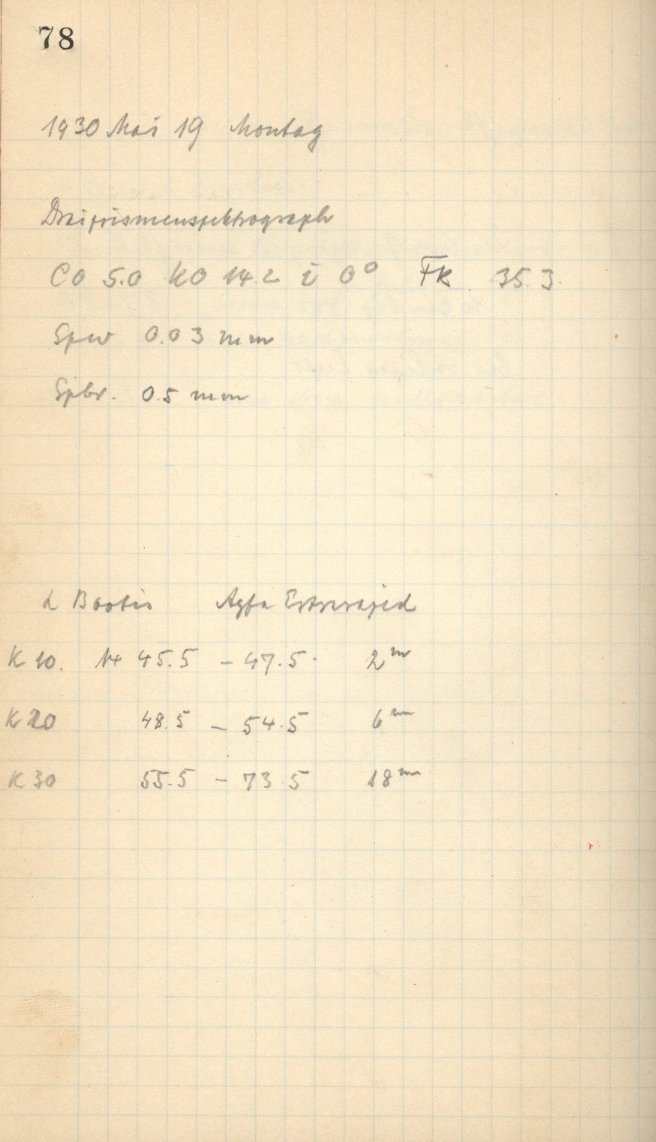 78
1930 Mai 19 Montag
Dreiprismenspektrograph
CO 5.0 KO 14.2 i 0° FK 35.3
Spw 0.03 mm
Spbr. 0.5 mm
α Bootis Agfa Extrarapid
K 10. 14 45.5 – 47.5 2ᵐ
K 20 48.5 – 54.5 6ᵐ
K 30 55.5 – 73.5 18ᵐ